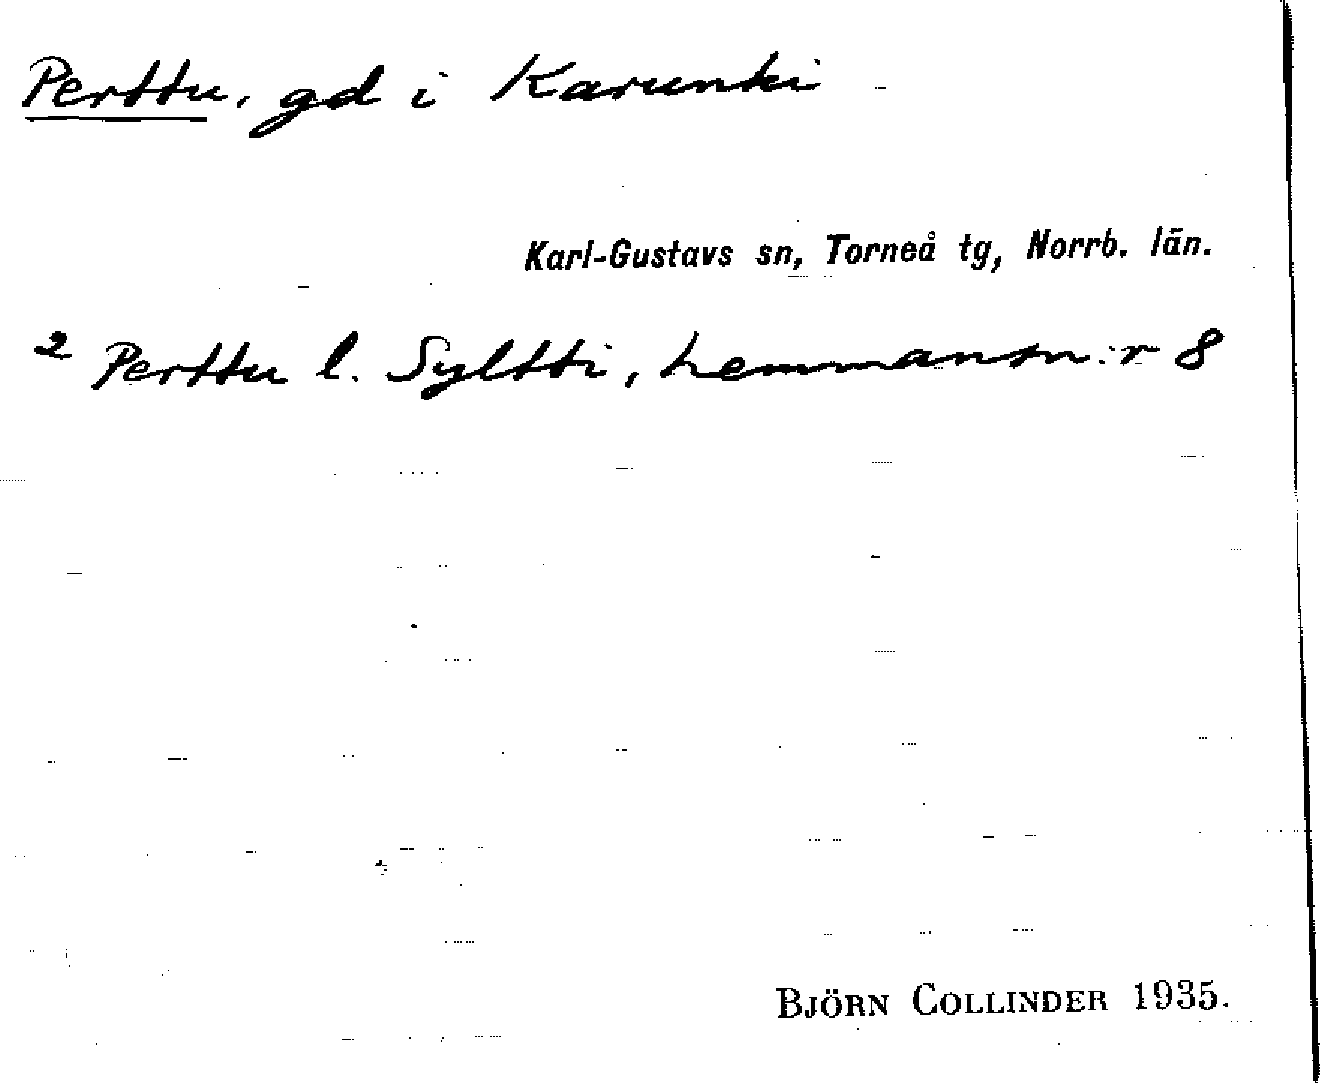 Perttu, gd i Karunki
Karl-Gustavs sn, Torneå tg, Norrb. län.
2 Perttu l. Syltti, hemmansn:r 8
BJÖRN COLLINDER 1935.